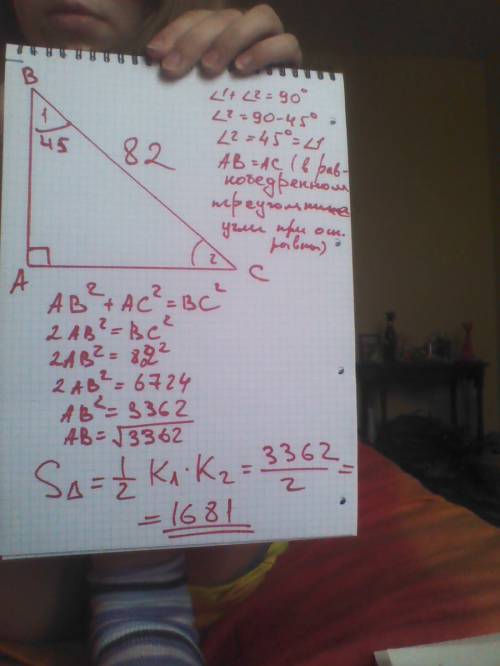 B
1
45
82
A
2
C
∠1 + ∠2 = 90°
∠2 = 90 - 45°
∠2 = 45° = ∠1
AB = AC (в рав-
нобедренном
треугольнике
углы при осн.
равны)
AB² + AC² = BC²
2AB² = BC²
2AB² = 82²
2AB² = 6724
AB² = 3362
AB = √3362
S∆ = 1/2 K₁ · K₂ = 3362/2 =
= 1681